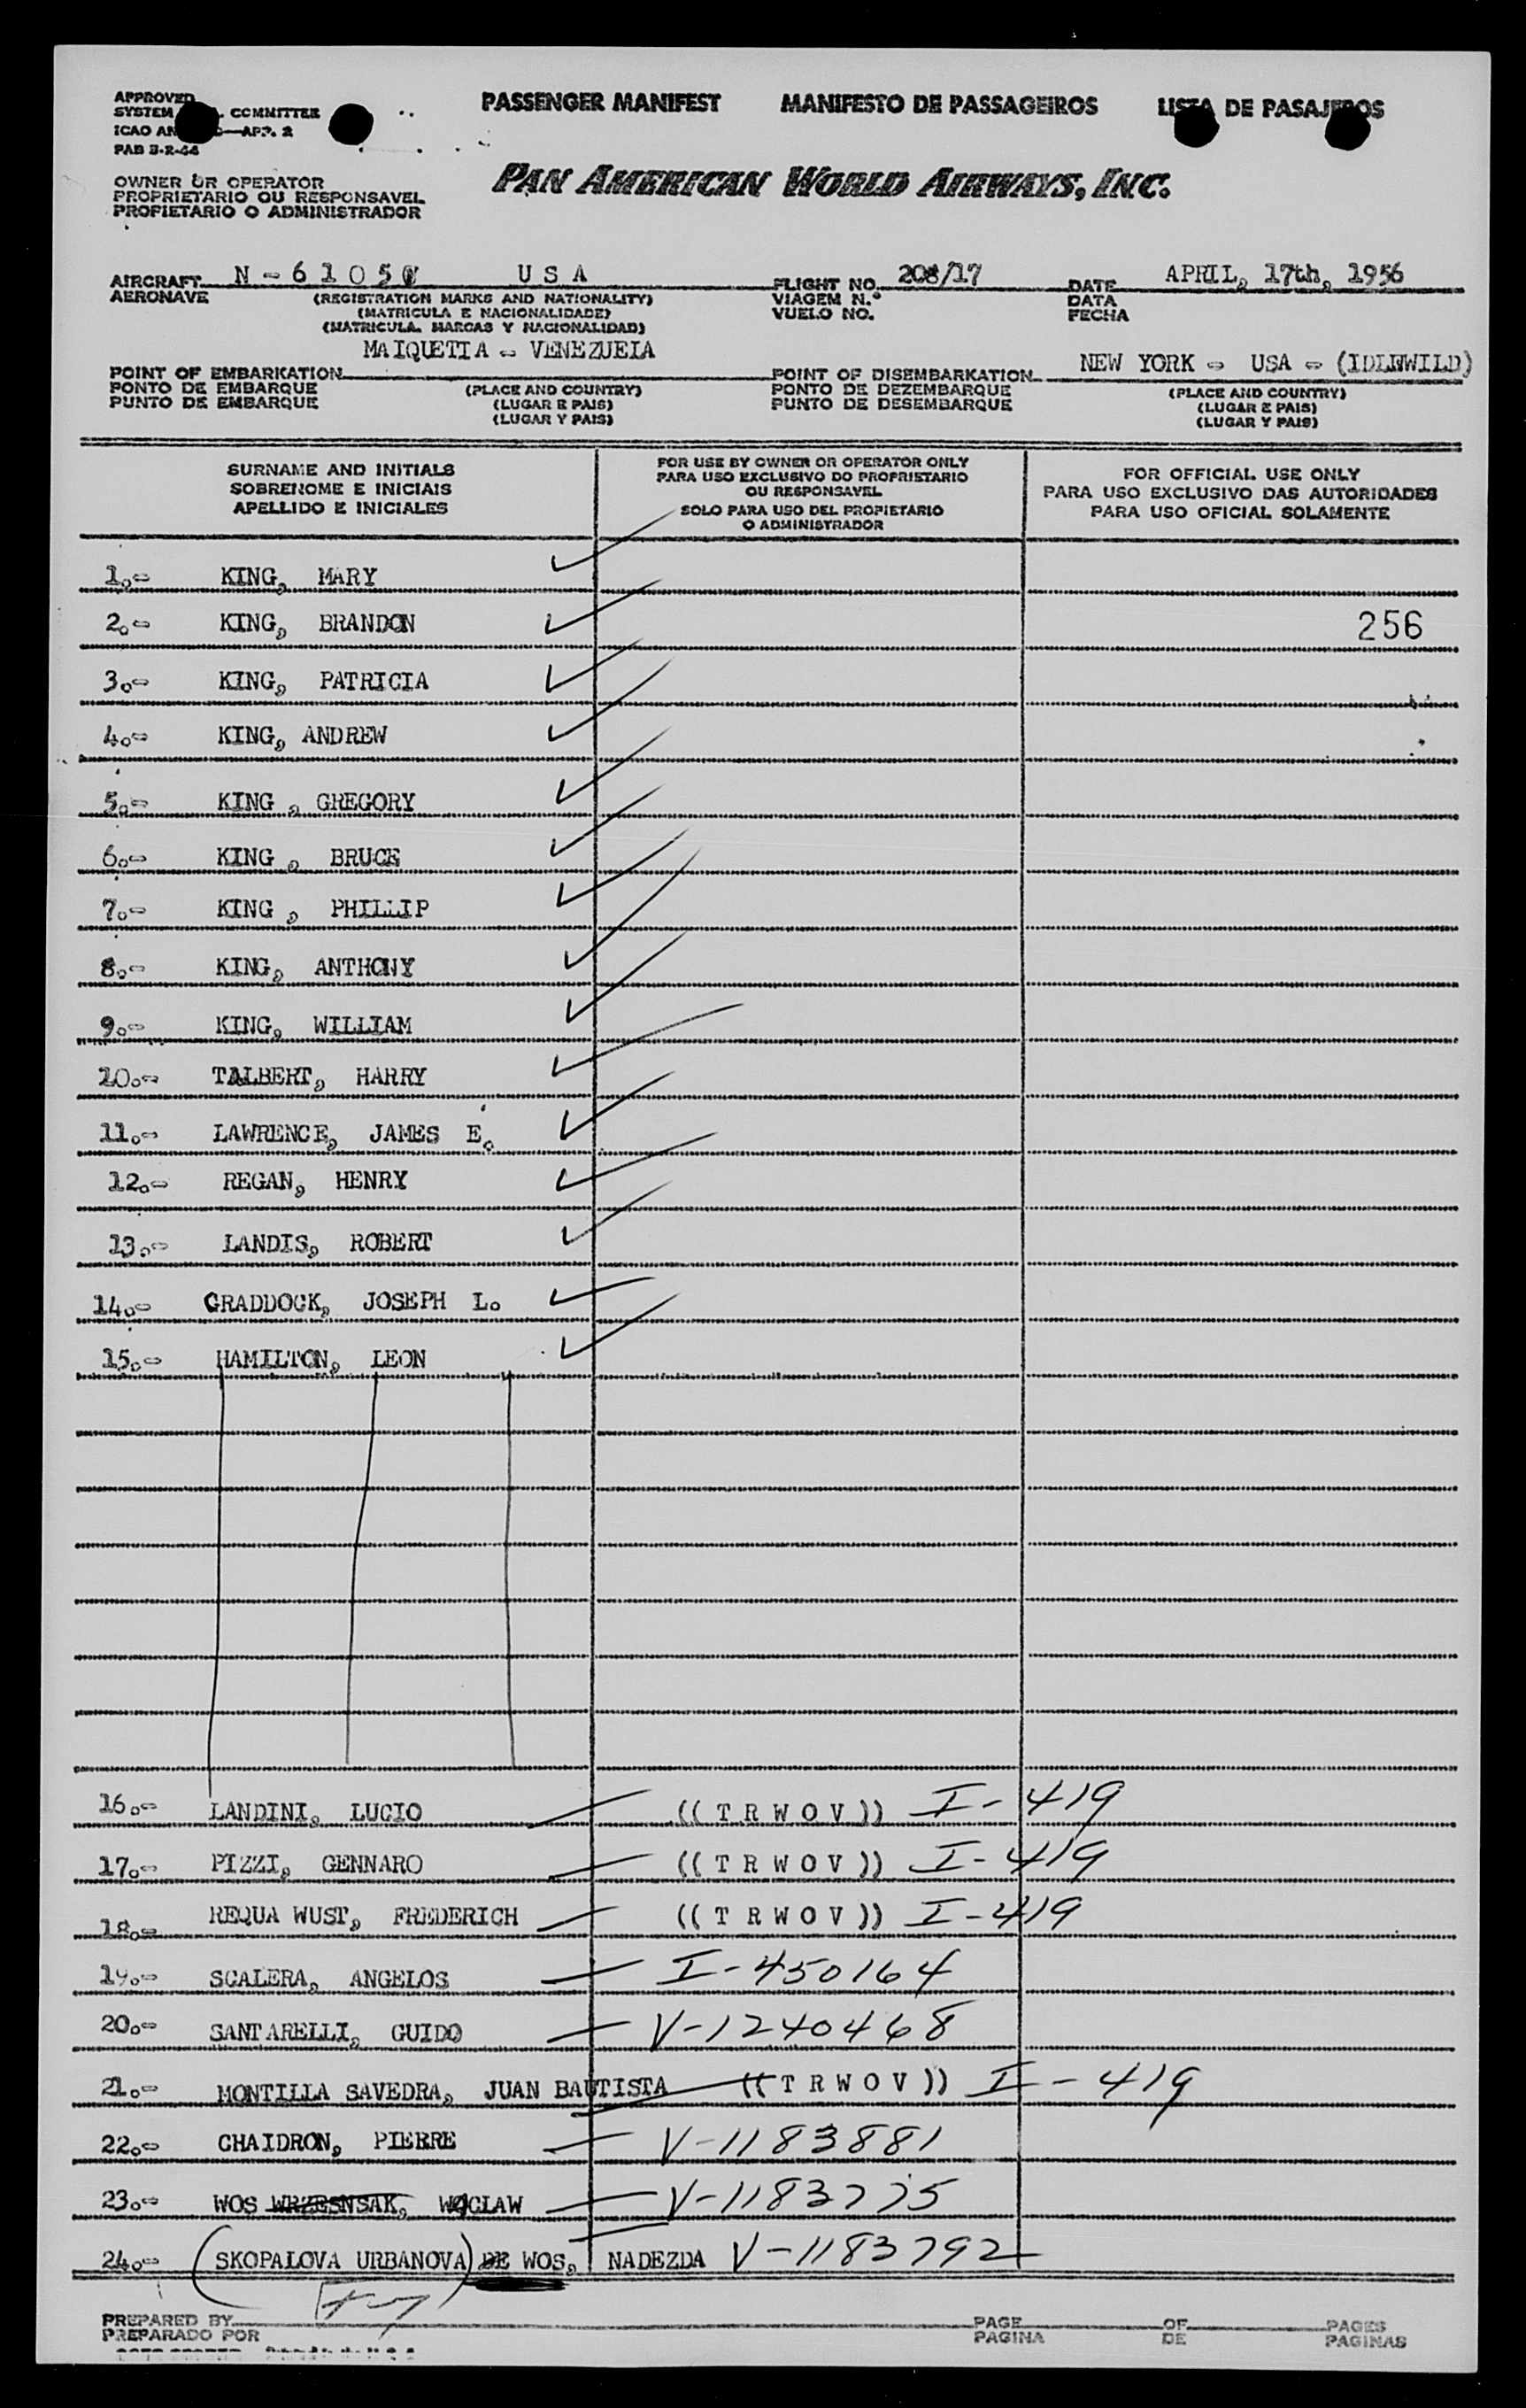 APPROVED
SYSTEM COMMITTEE
ICAO AN APP. 2
PAB 3-2-44
PASSENGER MANIFEST MANIFESTO DE PASSAGEIROS LISTA DE PASAJEROS
OWNER OR OPERATOR
PROPRIETARIO OU RESPONSAVEL
PROPIETARIO O ADMINISTRADOR
PAN AMERICAN WORLD AIRWAYS, INC.
AIRCRAFT N - 6 1 0 5 U S A FLIGHT NO. 208/17 DATE APRIL, 17th, 1956
AERONAVE (REGISTRATION MARKS AND NATIONALITY) VIAGEM N.° DATA
(MATRICULA E NACIONALIDADE) VUELO NO. FECHA
(MATRICULA. MARCAS Y NACIONALIDAD)
MAIQUETIA - VENEZUELA NEW YORK - USA - (IDLEWILD)
POINT OF EMBARKATION POINT OF DISEMBARKATION
PONTO DE EMBARQUE (PLACE AND COUNTRY) PONTO DE DEZEMBARQUE (PLACE AND COUNTRY)
PUNTO DE EMBARQUE (LUGAR E PAIS) PUNTO DE DESEMBARQUE (LUGAR E PAIS)
(LUGAR Y PAIS) (LUGAR Y PAIS)
SURNAME AND INITIALS
SOBRENOME E INICIAIS
APELLIDO E INICIALES
FOR USE BY OWNER OR OPERATOR ONLY
PARA USO EXCLUSIVO DO PROPRIETARIO
OU RESPONSAVEL
SOLO PARA USO DEL PROPIETARIO
O ADMINISTRADOR
FOR OFFICIAL USE ONLY
PARA USO EXCLUSIVO DAS AUTORIDADES
PARA USO OFICIAL SOLAMENTE
1.- KING, MARY
2.- KING, BRANDON 256
3.- KING, PATRICIA
4.- KING, ANDREW
5.- KING , GREGORY
6.- KING , BRUCE
7.- KING , PHILLIP
8.- KING, ANTHONY
9.- KING, WILLIAM
10.- TALBERT, HARRY
11.- LAWRENCE, JAMES E.
12.- REGAN, HENRY
13.- LANDIS, ROBERT
14.- CRADDOCK, JOSEPH L.
15.- HAMILTON, LEON
16.- LANDINI, LUCIO ((T R W O V)) I-419
17.- PIZZI, GENNARO ((T R W O V)) I-419
18.- REQUA WUST, FREDERICH ((T R W O V)) I-419
19.- SCALERA, ANGELOS I-450164
20.- SANTARELLI, GUIDO V-1240468
21.- MONTILLA SAVEDRA, JUAN BAUTISTA ((T R W O V)) I-419
22.- CHAIDRON, PIERRE V-1183881
23.- WOS WRZESNSAK, WACLAW V-1183775
24.- (SKOPALOVA URBANOVA) DE WOS, NADEZDA V-1183792
PREPARED BY PAGE OF PAGES
PREPARADO POR PAGINA DE PAGINAS